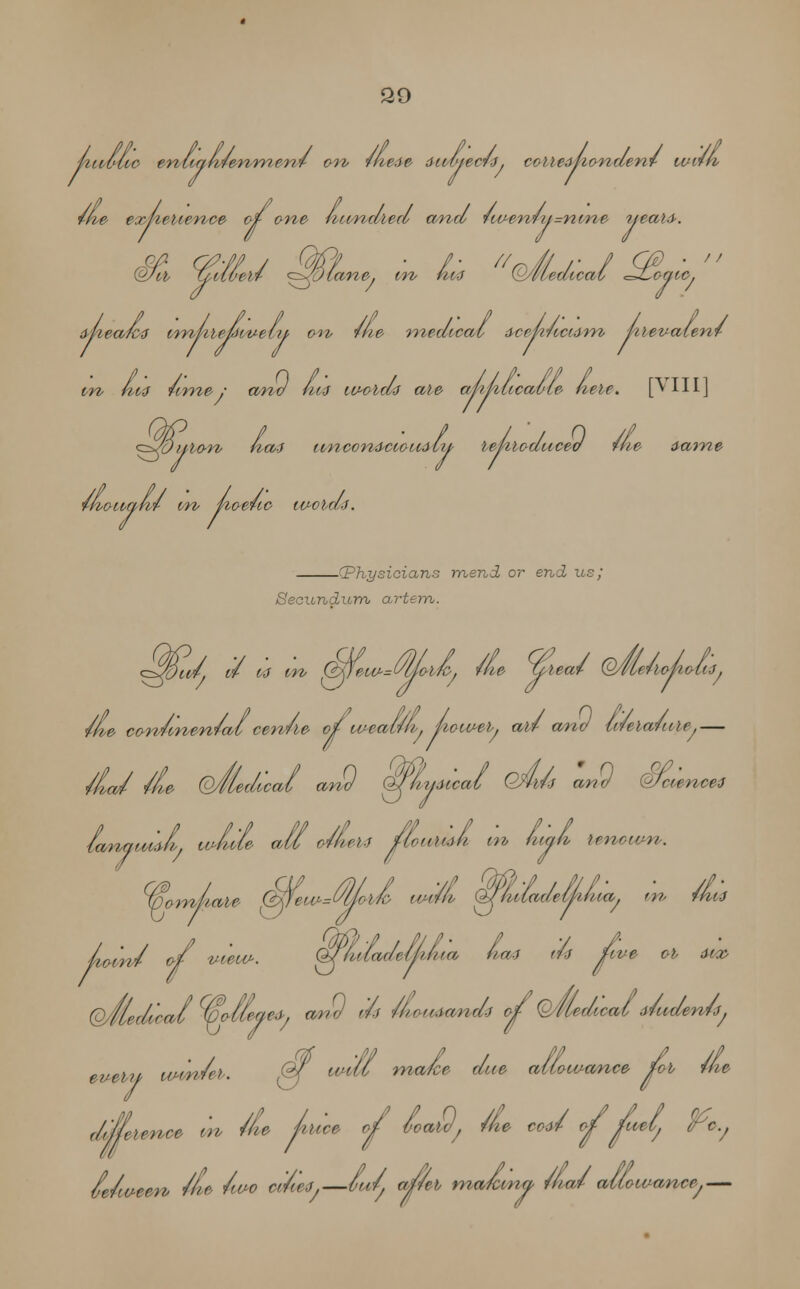 29
public enlightenment on these subjects, correspondent with
the experience of one hundred and twenty=nine years.
Sir Gilbert Blane, in his "Medical Logic,"
speaks impressively on the medical scepticism prevalent
in his time; and his words are applicable here. [VIII]
Byron has unconsciously reproduced the same
thought in poetic words.
——Physicians mend or end us;
Secundum artem.
But, it is in New=York, the Great Metropolis,
the continental centre of wealth, power, art and literature,—
that the Medical and Physical Arts and Sciences
languish, while all others flourish in high renown.
Compare New=York with Philadelphia, in this
point of view. Philadelphia has its five or six
Medical Colleges, and its thousands of Medical students,
every winter. I will make due allowance for the
difference in the price of board, the cost of fuel, &c.,
between the two cities,—but, after making that allowance,—